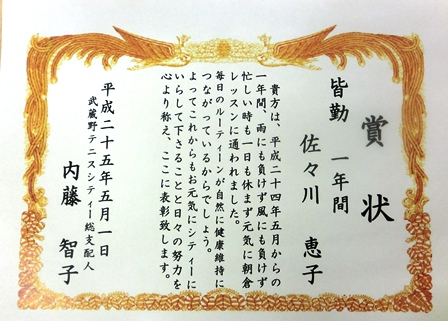 賞状
皆勤 一年間
佐々川 恵子
貴方は、平成二十四年五月からの
一年間、雨にも負けず風にも負けず
忙しい時も一日も休まず元気に朝倉
レッスンに通われました。
毎日のルーティーンが自然に健康維持に
つながっているからでしょう。
よってこれからもお元気にシティーに
いらして下さることと日々の努力を
心より称え、ここに表彰致します。
平成二十五年五月一日
武蔵野テニスシティー総支配人
内藤 智子